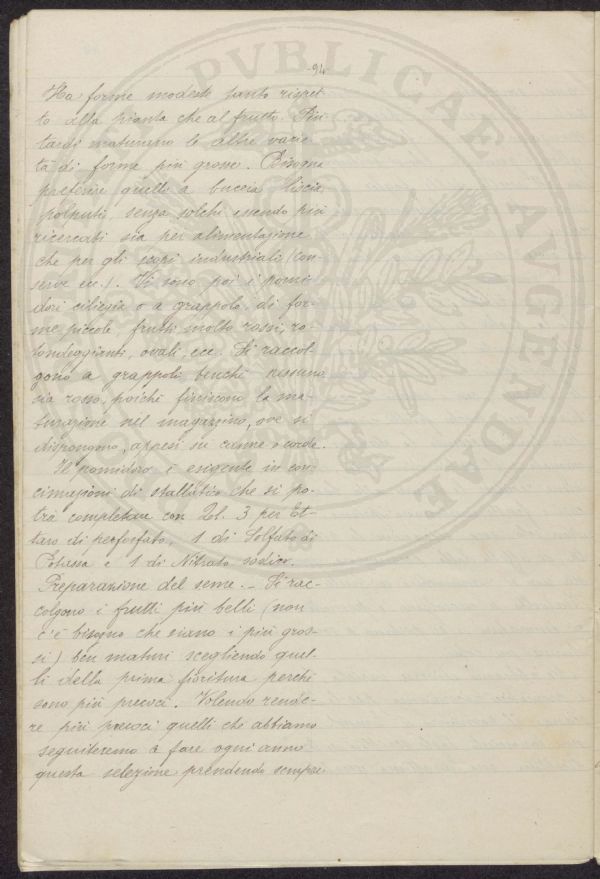 PVBLICAE AVGENDAE
-94-
Ha forme modeste tanto rispet-
to alla pianta che al frutto. Più
tardi maturano le altre varie-
tà di forme più grosse. Bisogna
preferire quelle a buccia liscia
polputi, senza solchi, essendo più
ricercati sia per alimentazione
che per gli scopi industriali (con-
serve ecc.). Vi sono poi i pomi-
dori ciliegia o a grappolo, di for-
me piccole, frutti molto rossi, ro-
tondeggianti, ovali, ecc. Si raccol-
gono a grappoli, benchè nessuno
sia rosso, poichè finiscono la ma-
turazione nel magazzino, ove si
dispongono, appesi su canne o corde.
Il pomidoro è esigente in con-
cimazioni di stallatico che si po-
trà completare con Qt. 3 per Et-
taro di perfosfato, 1 di Solfato di
Potassa e 1 di Nitrato sodico.
Preparazione del seme. - Si rac-
colgono i frutti più belli (non
c'è bisogno che siano i più gros-
si) ben maturi scegliendo quel-
li della prima fioritura perchè
sono più precoci. Volendo rende-
re più precoci quelli che abbiamo
seguiteremo a fare ogni anno
questa selezione prendendo sempre